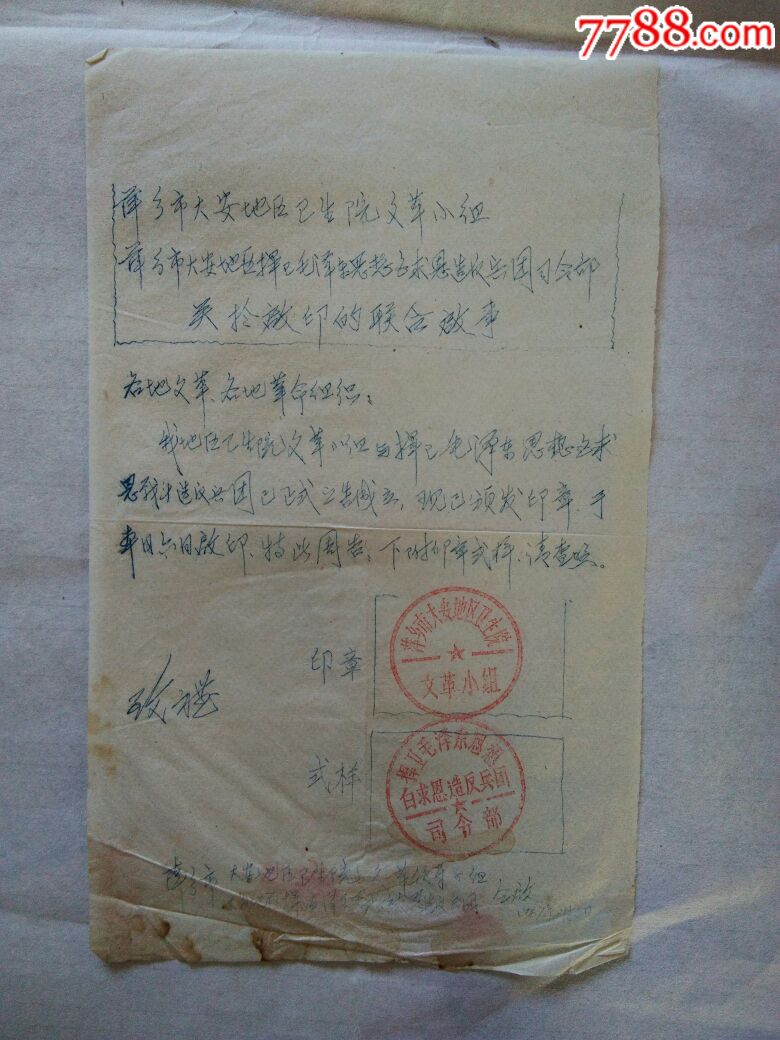 7788.com
萍乡市大安地区卫生院文革小组
萍乡市大安地区捍卫毛泽东思想白求恩造反兵团司令部
关于啟印的联合啟事
各地文革、各地革命组织：
我地区卫生院文革小组与捍卫毛泽东思想白求
恩战斗造反兵团已正式宣告成立，现已颁发印章，于
本月六日啟印、特此周告，下附印章式样、请查照。
萍乡市大安地区卫生院
文革小组
印章
致礼
捍卫毛泽东思想
白求恩造反兵团
司令部
式样
萍乡市大安地区卫生院文革 小组
仝啟